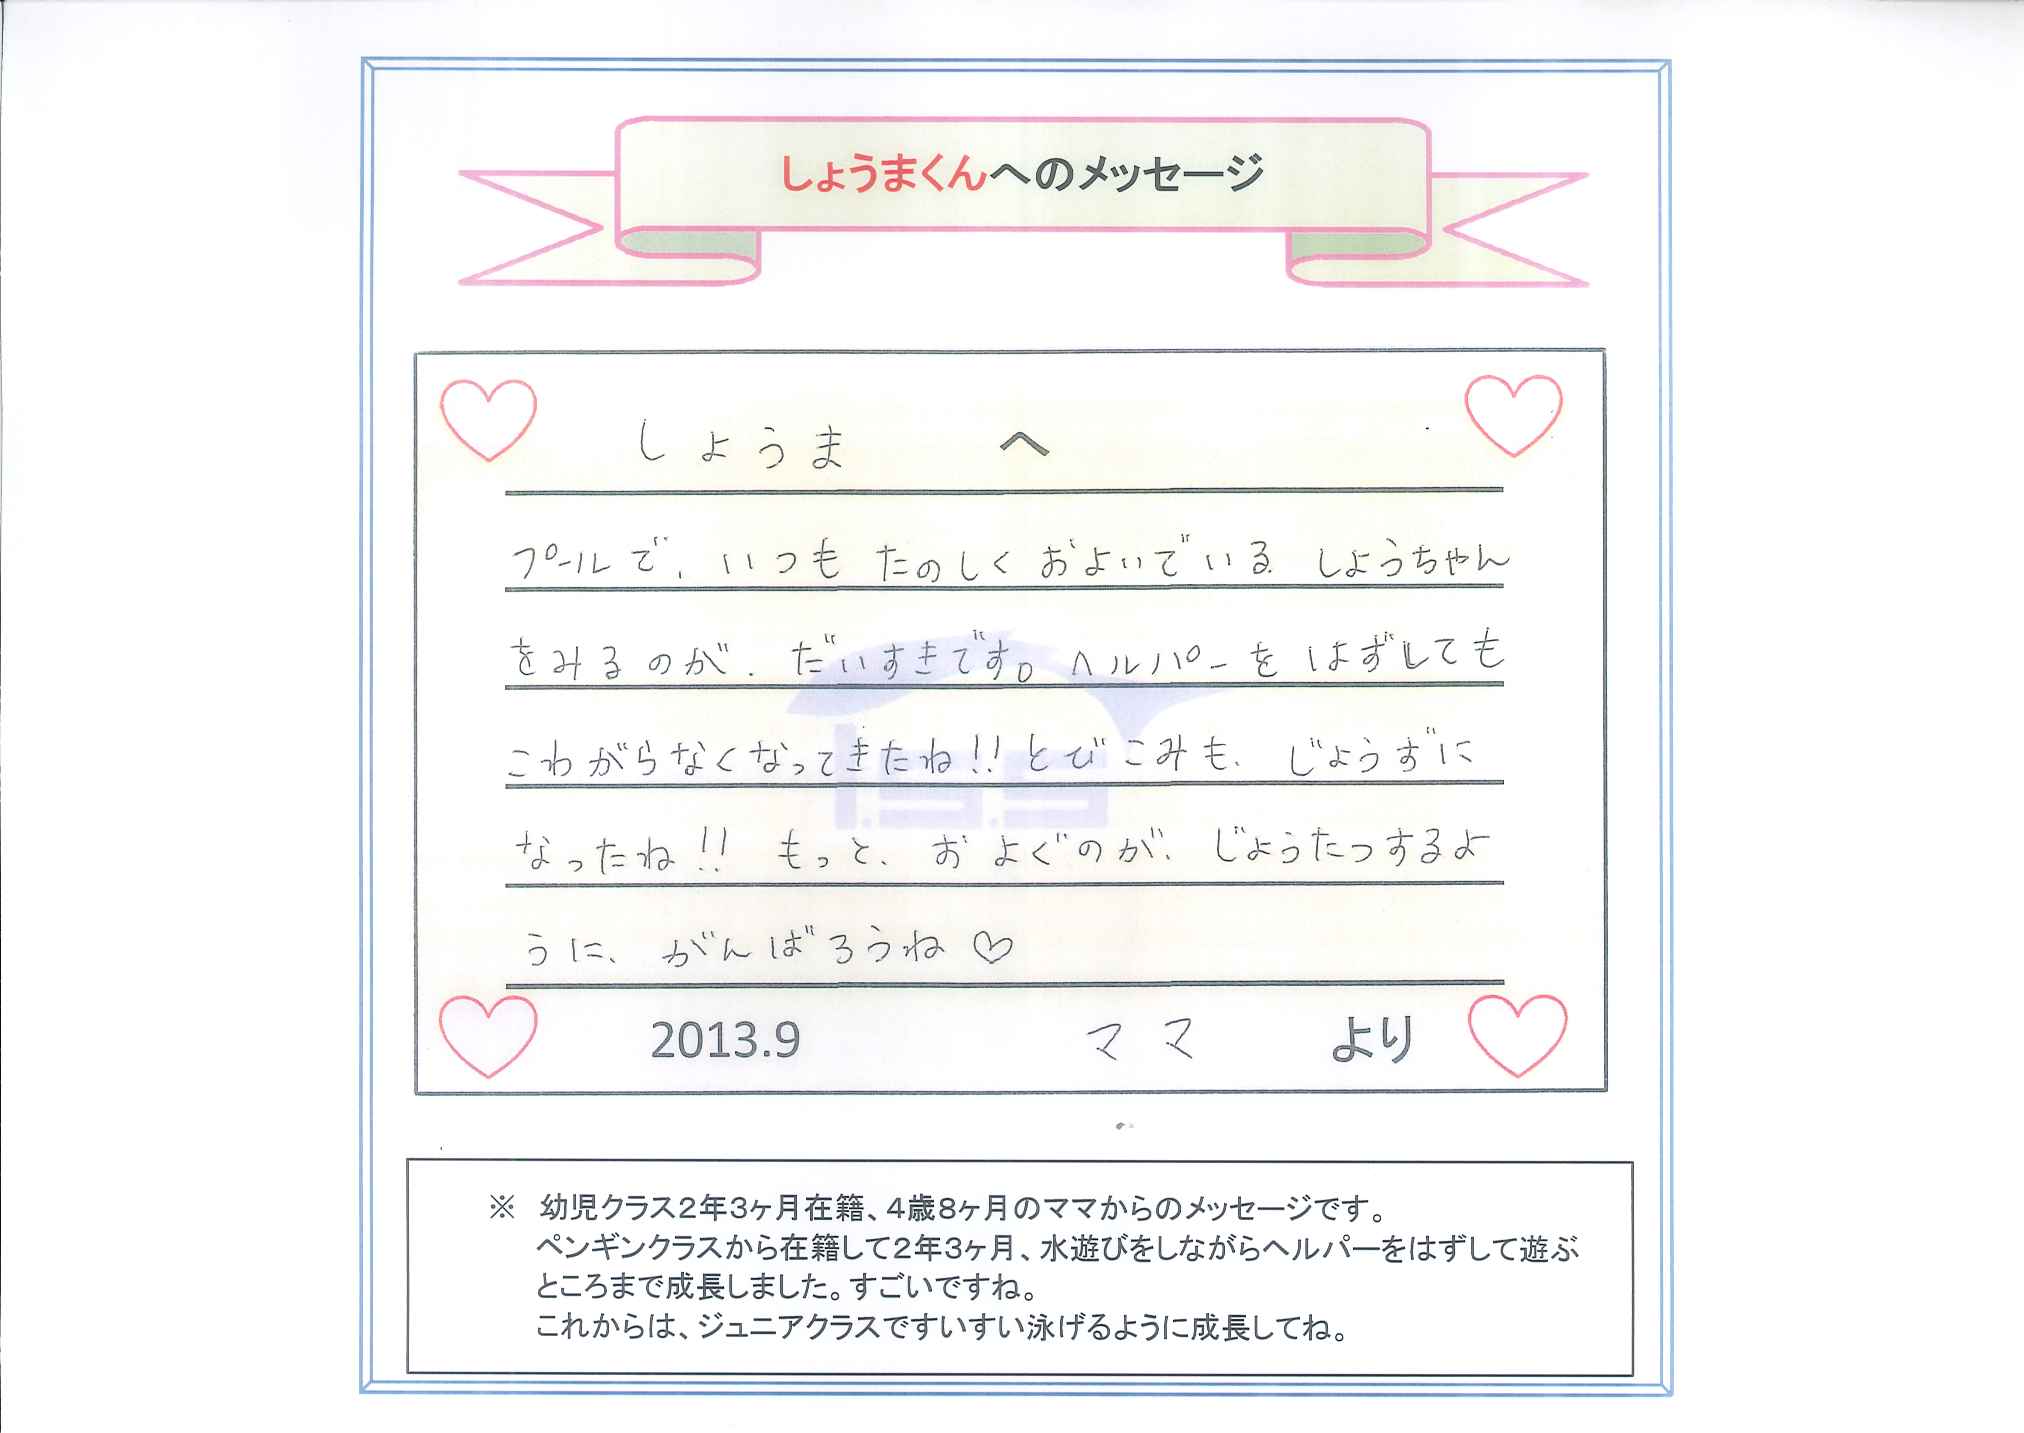 しょうまくんへのメッセージ
しょうま へ
プールで、いつも たのしく およいでいる しょうちゃん
をみるのが、だいすきです。ヘルパーを はずしても
こわがらなくなってきたね!!とびこみも、じょうずに
なったね!! もっと、およぐのが、じょうたつするよ
うに、がんばろうね♡
2013.9 ママ より
I.S.S
※ 幼児クラス2年3ヶ月在籍、4歳8ヶ月のママからのメッセージです。
ペンギンクラスから在籍して2年3ヶ月、水遊びをしながらヘルパーをはずして遊ぶ
ところまで成長しました。すごいですね。
これからは、ジュニアクラスですいすい泳げるように成長してね。